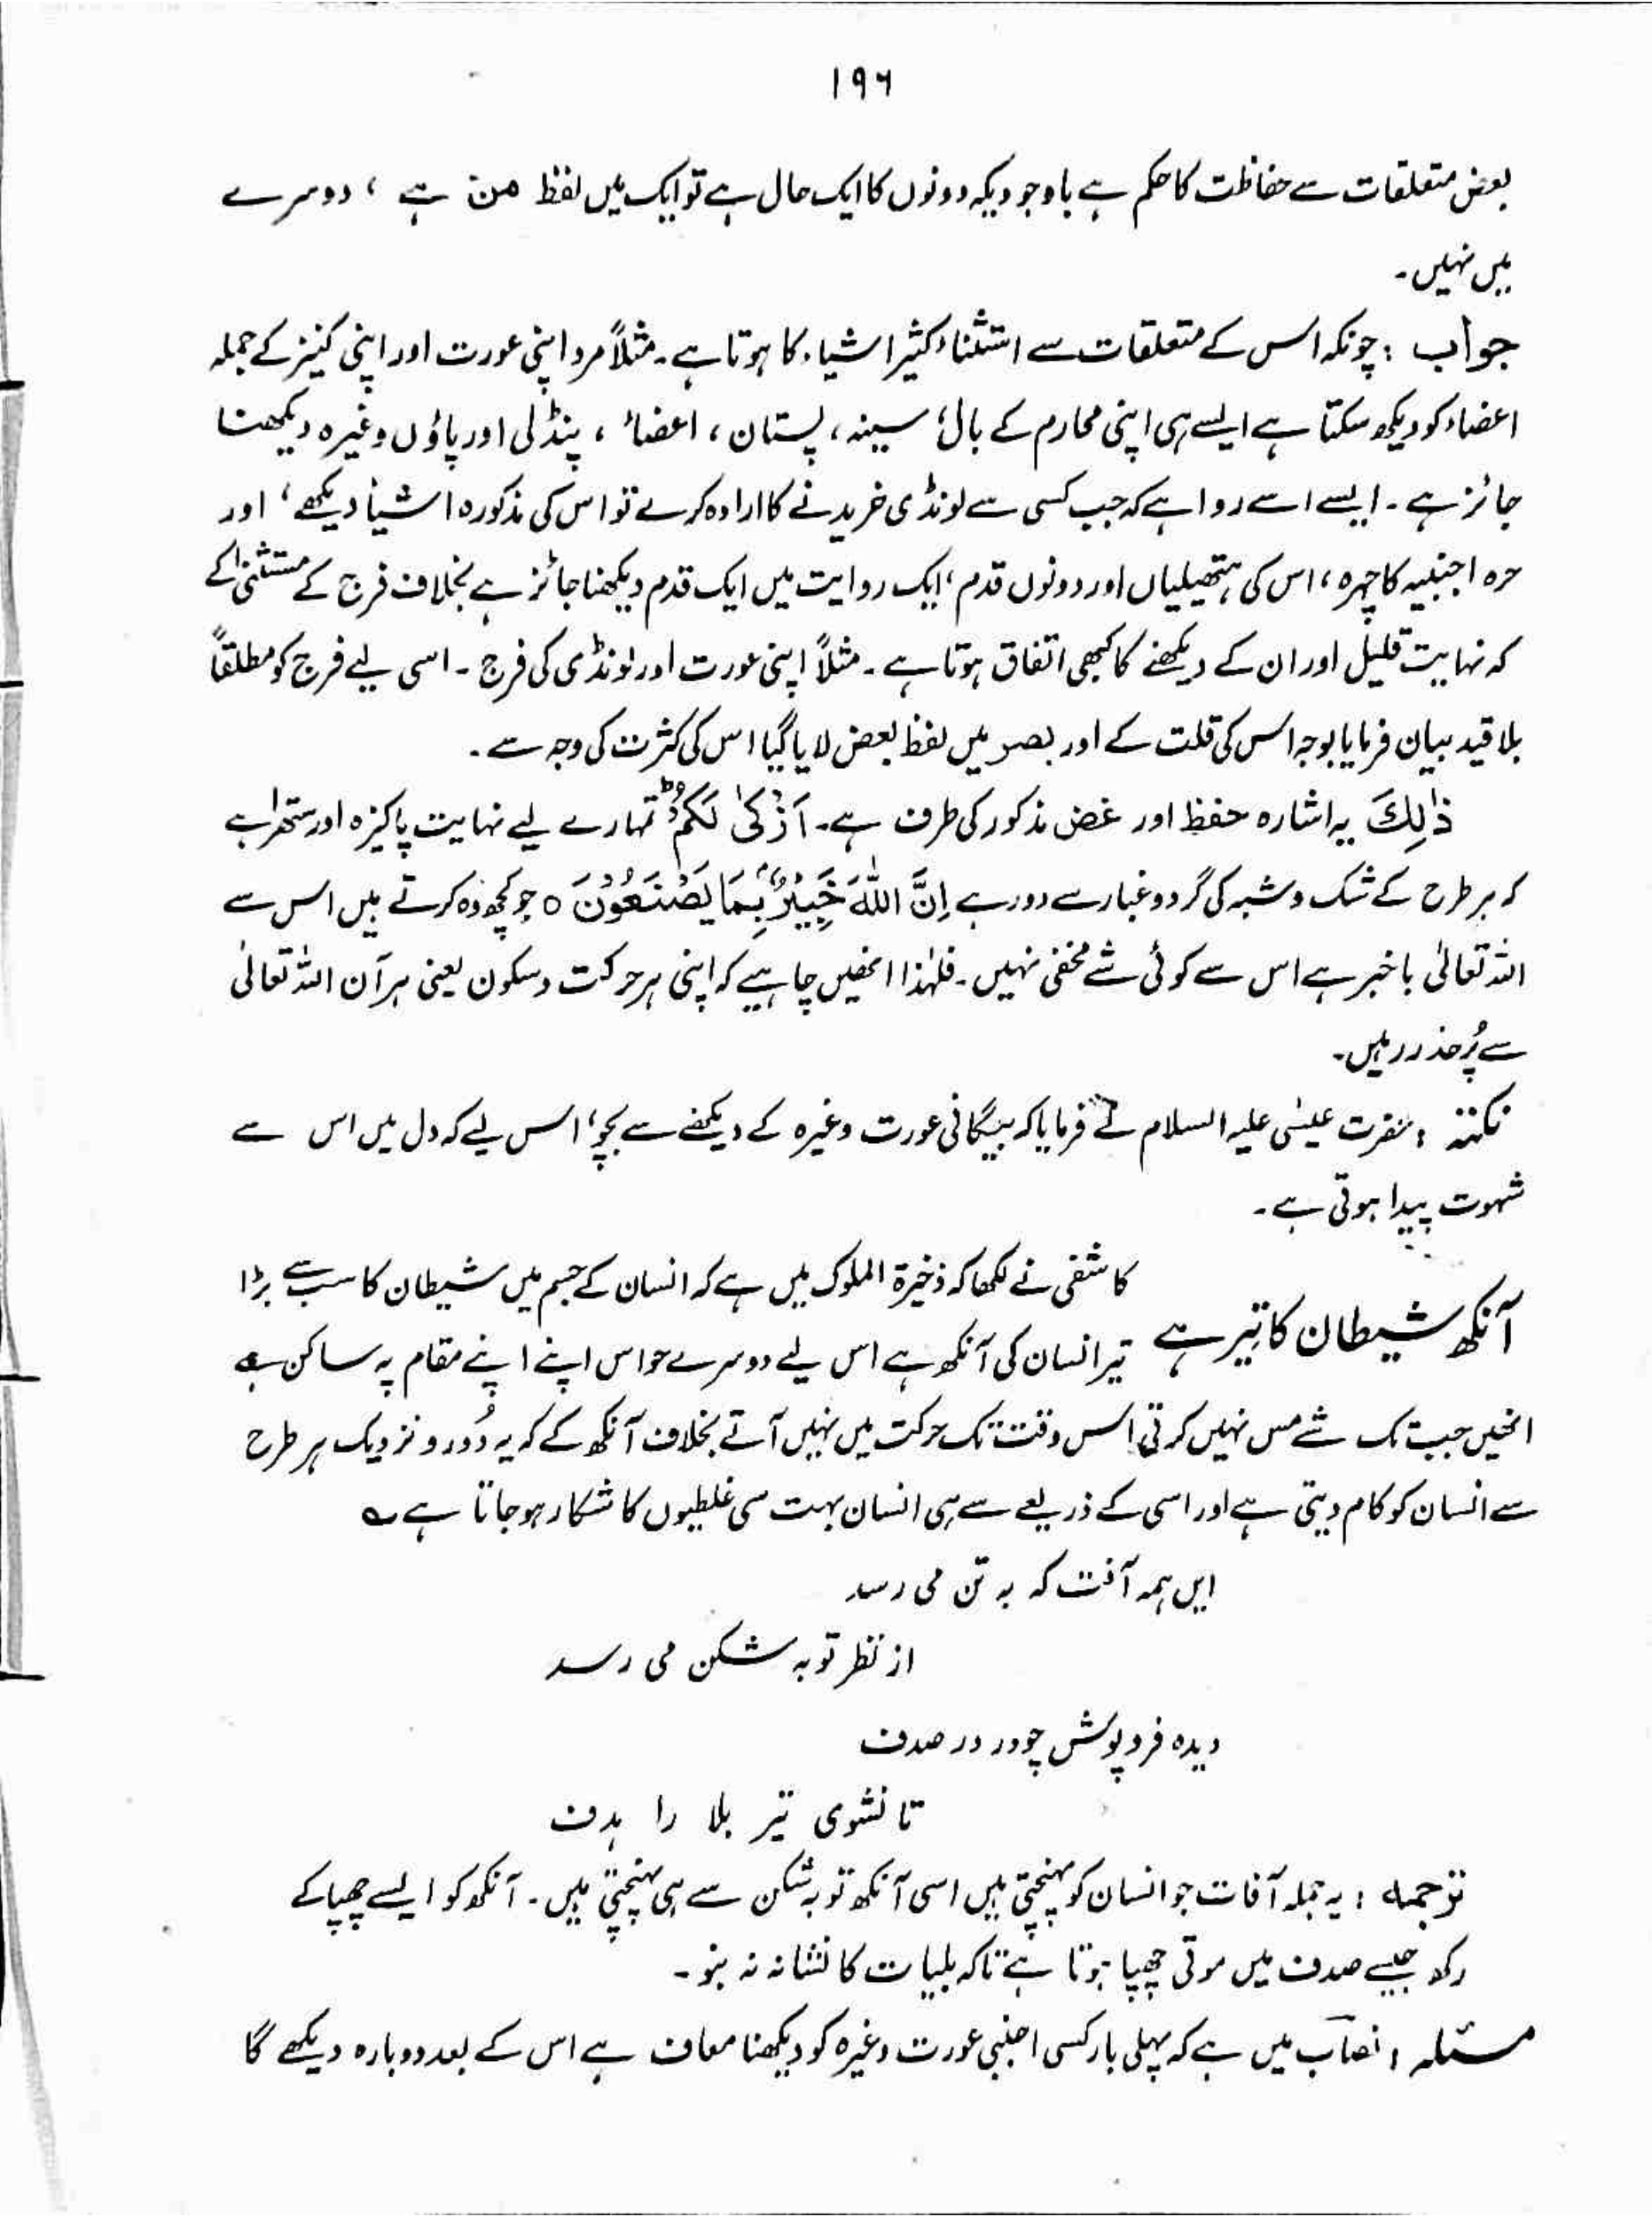 ۱۹۶
بعض متعلقات سے حفاظت کا حکم ہے باوجودیکہ دونوں کا ایک حال ہے تو ایک میں لفظ من ہے ، دوسرے
میں نہیں۔
جواب : چونکہ اس کے متعلقات سے استثناء کثیر اشیاء کا ہوتا ہے۔ مثلاً مرد اپنی عورت اور اپنی کنیز کے جملہ
اعضاء کو دیکھ سکتا ہے ایسے ہی اپنی محارم کے بال، سینہ، پستان ، اعضاء ، پنڈلی اور پاؤں وغیرہ دیکھنا
جائز ہے۔ ایسے اسے روا ہے کہ جب کسی سے لونڈی خریدنے کا ارادہ کرے تو اس کی مذکورہ اشیا دیکھے، اور
حرہ اجنبیہ کا چہرہ ، اس کی ہتھیلیاں اور دونوں قدم ، ایک روایت میں ایک قدم دیکھنا جائز ہے بخلاف فرج کے مستثنیٰ کے
کہ نہایت قلیل اور ان کے دیکھنے کا کبھی اتفاق ہوتا ہے۔ مثلاً اپنی عورت اور لونڈی کی فرج ۔ اسی لیے فرج کو مطلقاً
بلا قید بیان فرمایا بوجہ اس کی قلت کے اور بصر میں لفظ بعض لایا گیا اس کی کثرت کی وجہ سے ۔
ذٰلِکَ یہ اشارہ حفظ اور غض مذکور کی طرف ہے۔ اَزْکٰی لَکُمْ ؕ تمہارے لیے نہایت پاکیزہ اور ستھرا ہے
کہ ہر طرح کے شک و شبہ کی گرد و غبار سے دور ہے اِنَّ اللّٰہَ خَبِیْرٌۢ بِمَا یَصْنَعُوْنَ ○ جو کچھ وہ کرتے ہیں اس سے
اللہ تعالیٰ باخبر ہے اس سے کوئی شے مخفی نہیں ۔ فلہٰذا انھیں چاہیے کہ اپنی ہر حرکت و سکون یعنی ہر آن اللہ تعالیٰ
سے پُر حذر رہیں۔
نکتہ : حضرت عیسٰی علیہ السلام نے فرمایا کہ بیگانی عورت وغیرہ کے دیکھنے سے بچو، اس لیے کہ دل میں اس سے
شہوت پیدا ہوتی ہے ۔
آنکھ شیطان کا تیر ہے
کاشفی نے لکھا کہ ذخیرۃ الملوک میں ہے کہ انسان کے جسم میں شیطان کا سب سے بڑا
تیر انسان کی آنکھ ہے اس لیے دوسرے حواس اپنے اپنے مقام پہ ساکن ہے
انھیں جب تک شے مس نہیں کرتی اس وقت تک حرکت میں نہیں آتے بخلاف آنکھ کے کہ یہ دُور و نزدیک ہر طرح
سے انسان کو کام دیتی ہے اور اسی کے ذریعے سے ہی انسان بہت سی غلطیوں کا شکار ہو جاتا ہے ؎
ایں ہمہ آفت کہ بہ تن می رسد
از نظر توبہ شکن می رسد
دیدہ فرو پوش چو در در صدف
تا نشوی تیر بلا را ہدف
ترجمہ : یہ جملہ آفات جو انسان کو پہنچتی ہیں اسی آنکھ توبہ شکن سے ہی پہنچتی ہیں ۔ آنکھ کو ایسے چھپا کے
رکھ جیسے صدف میں موتی چھپا ہوتا ہے تاکہ بلیات کا نشانہ نہ بنو ۔
مسئلہ : نصاب میں ہے کہ پہلی بار کسی اجنبی عورت وغیرہ کو دیکھنا معاف ہے اس کے بعد دوبارہ دیکھے گا